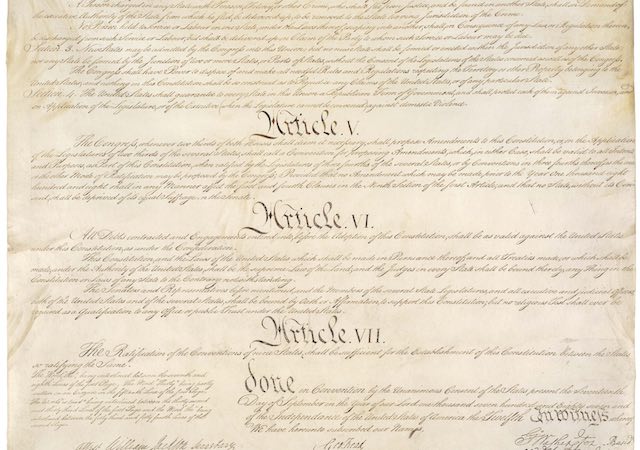 A Person charged in any State with Treason, Felony, or other Crime, who shall flee from Justice, and be found in another State, shall on Demand of
the executive Authority of the State from which he fled, be delivered up, to be removed to the State having Jurisdiction of the Crime.
No Person held to Service or Labour in one State, under the Laws thereof, escaping into another, shall, in Consequence of any Law or Regulation therein,
be discharged from such Service or Labour, but shall be delivered up on Claim of the Party to whom such Service or Labour may be due.
Section. 3. New States may be admitted by the Congress into this Union; but no new State shall be formed or erected within the Jurisdiction of any other State;
nor any State be formed by the Junction of two or more States, or Parts of States, without the Consent of the Legislatures of the States concerned as well as of the Congress.
The Congress shall have Power to dispose of and make all needful Rules and Regulations respecting the Territory or other Property belonging to the
United States; and nothing in this Constitution shall be so construed as to Prejudice any Claims of the United States, or of any particular State.
Section. 4. The United States shall guarantee to every State in this Union a Republican Form of Government, and shall protect each of them against Invasion; and
on Application of the Legislature, or of the Executive (when the Legislature cannot be convened) against domestic Violence.
Article. V.
The Congress, whenever two thirds of both Houses shall deem it necessary, shall propose Amendments to this Constitution, or, on the Application
of the Legislatures of two thirds of the several States, shall call a Convention for proposing Amendments, which, in either Case, shall be valid to all Intents
and Purposes, as Part of this Constitution, when ratified by the Legislatures of three fourths of the several States, or by Conventions in three fourths thereof, as the one
or the other Mode of Ratification may be proposed by the Congress; Provided that no Amendment which may be made prior to the Year One thousand eight
hundred and eight shall in any Manner affect the first and fourth Clauses in the Ninth Section of the first Article; and that no State, without its Consent,
shall be deprived of its equal Suffrage in the Senate.
Article. VI.
All Debts contracted and Engagements entered into, before the Adoption of this Constitution, shall be as valid against the United States
under this Constitution, as under the Confederation.
This Constitution, and the Laws of the United States which shall be made in Pursuance thereof; and all Treaties made, or which shall be
made, under the Authority of the United States, shall be the supreme Law of the Land; and the Judges in every State shall be bound thereby, any Thing in the
Constitution or Laws of any State to the Contrary notwithstanding.
The Senators and Representatives before mentioned, and the Members of the several State Legislatures, and all executive and judicial Officers,
both of the United States and of the several States, shall be bound by Oath or Affirmation, to support this Constitution; but no religious Test shall ever be
required as a Qualification to any Office or public Trust under the United States.
Article. VII.
The Ratification of the Conventions of nine States, shall be sufficient for the Establishment of this Constitution between the States
so ratifying the Same.
The Word, "the," being interlined between the seventh and
eighth Lines of the first Page, The Word "Thirty" being partly
written on an Erazure in the fifteenth Line of the first Page,
The Words "is tried" being interlined between the thirty second
and thirty third Lines of the first Page and the Word "the" being
interlined between the forty third and forty fourth Lines of the
second Page.
done in Convention by the Unanimous Consent of the States present the Seventeenth
Day of September in the Year of our Lord one thousand seven hundred and Eighty seven and
of the Independence of the United States of America the Twelfth In Witness whereof
We have hereunto subscribed our Names,
Attest William Jackson Secretary
Go. Washington